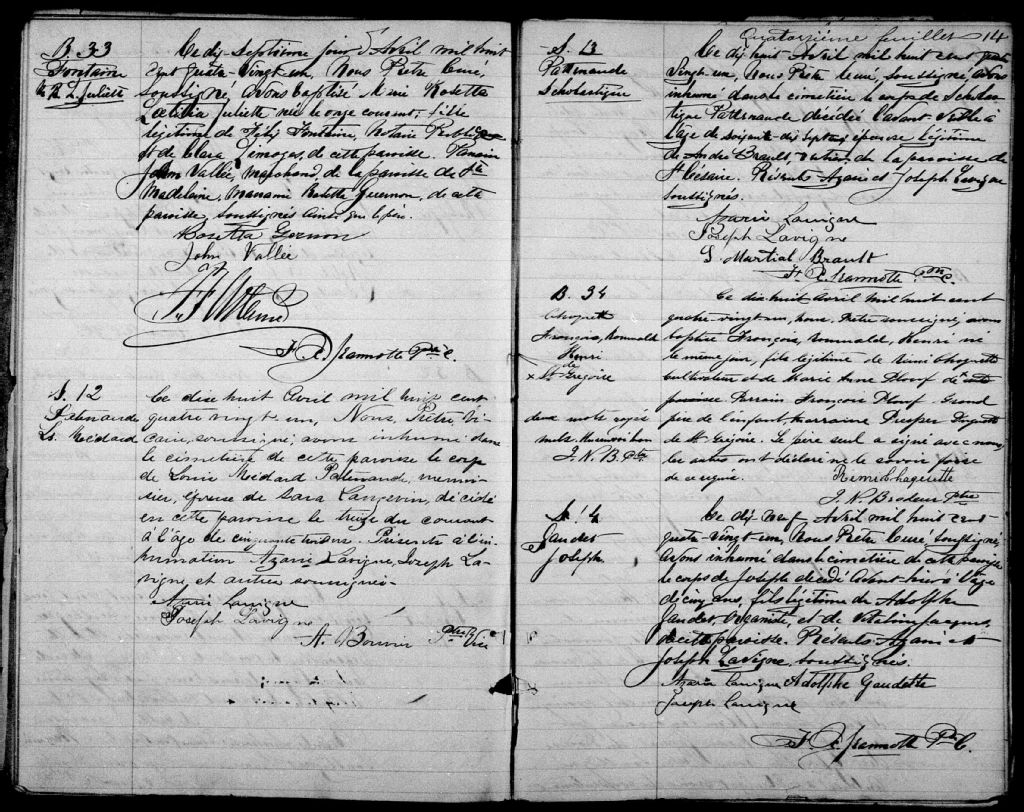 B. 33
Fontaine
M. R. L. Juliette
Ce dix-septième jour d'Avril mil huit
cent quatre-vingt-un, Nous Prêtre Curé,
soussigné avons baptisé Marie Rosetta
Lætitia Juliette née le onze courant, fille
légitime de Félix Fontaine, Notaire Public
et de Clara Limoges, de cette paroisse. Parrain
John Vallée, marchand, de la paroisse de Ste
Madeleine, Marraine Rosetta Guernon, de cette
paroisse, soussignés ainsi que le père.
Rosetta Gernon
John Vallée
F. X. Jeannotte Ptre C.
S. 12
Patenaude
Ls. Médard
Ce dix huit Avril mil huit cent
quatre vingt un, Nous, Prêtre, Vi-
caire, soussigné, avons inhumé dans
le cimetière de cette paroisse le corps
de Louis Médard Patenaude, menui-
sier, époux de Sara Langevin, décédé
en cette paroisse le treize du courant
à l'âge de cinquante trois ans. Présents à l'in-
humation Azarie Lavigne, Joseph La-
vigne, et autres soussignés.
Azarie Lavigne
Joseph Lavigne
A. Ptre Vic
Quatorzième feuillet 14
S. 13
Pattenaude
Scholastique
Ce dix huit Avril mil huit cent quatre
vingt-un, Nous Prêtre Curé, soussigné, avons
inhumé dans le cimetière le corps de Scholas-
tique Pattenaude décédée l'avant-veille à
l'âge de soixante-dix sept ans épouse légitime
de André Brault, de la paroisse de
St Césaire. Présents Azarie et Joseph Lavigne
soussignés.
Azarie Lavigne
Joseph Lavigne
S. Martial Brault
F. X. Jeannotte Ptre C.
B. 34
Choquette
François, Romuald
Henri
de
x St Grégoire
deux mots rayés
nuls.
J. N. B. Ptre
Ce dix huit Avril mil huit cent
quatre-vingt un, nous, Prêtre soussigné, avons
baptisé François, Romuald, Henri né
le même jour, fils légitime de Rémi Choquette
Cultivateur et de Marie Anne Plouf de cette
paroisse Parrain François Plouf. Grand
père de l'enfant, marraine Choquette
de St Grégoire. Le père seul a signé avec nous,
les autres ont déclaré ne le savoir faire
de ce requis. Remi Choquette
J. N. Brodeur Ptre
S. 14
Gaudet
Joseph
Ce dix neuf Avril mil huit cent
quatre-vingt-un, Nous Prêtre Curé, soussigné,
avons inhumé dans le cimetière de cette paroisse
le corps de Joseph décédé avant-hier à l'âge
de cinq ans, fils légitime de Adolphe
Gaudet, et de Jacques,
de cette paroisse. Présents Azarie et
Joseph Lavigne, soussignés.
Azarie Lavigne Adolphe Gaudette
Joseph Lavigne
F. X. Jeannotte Ptre C.